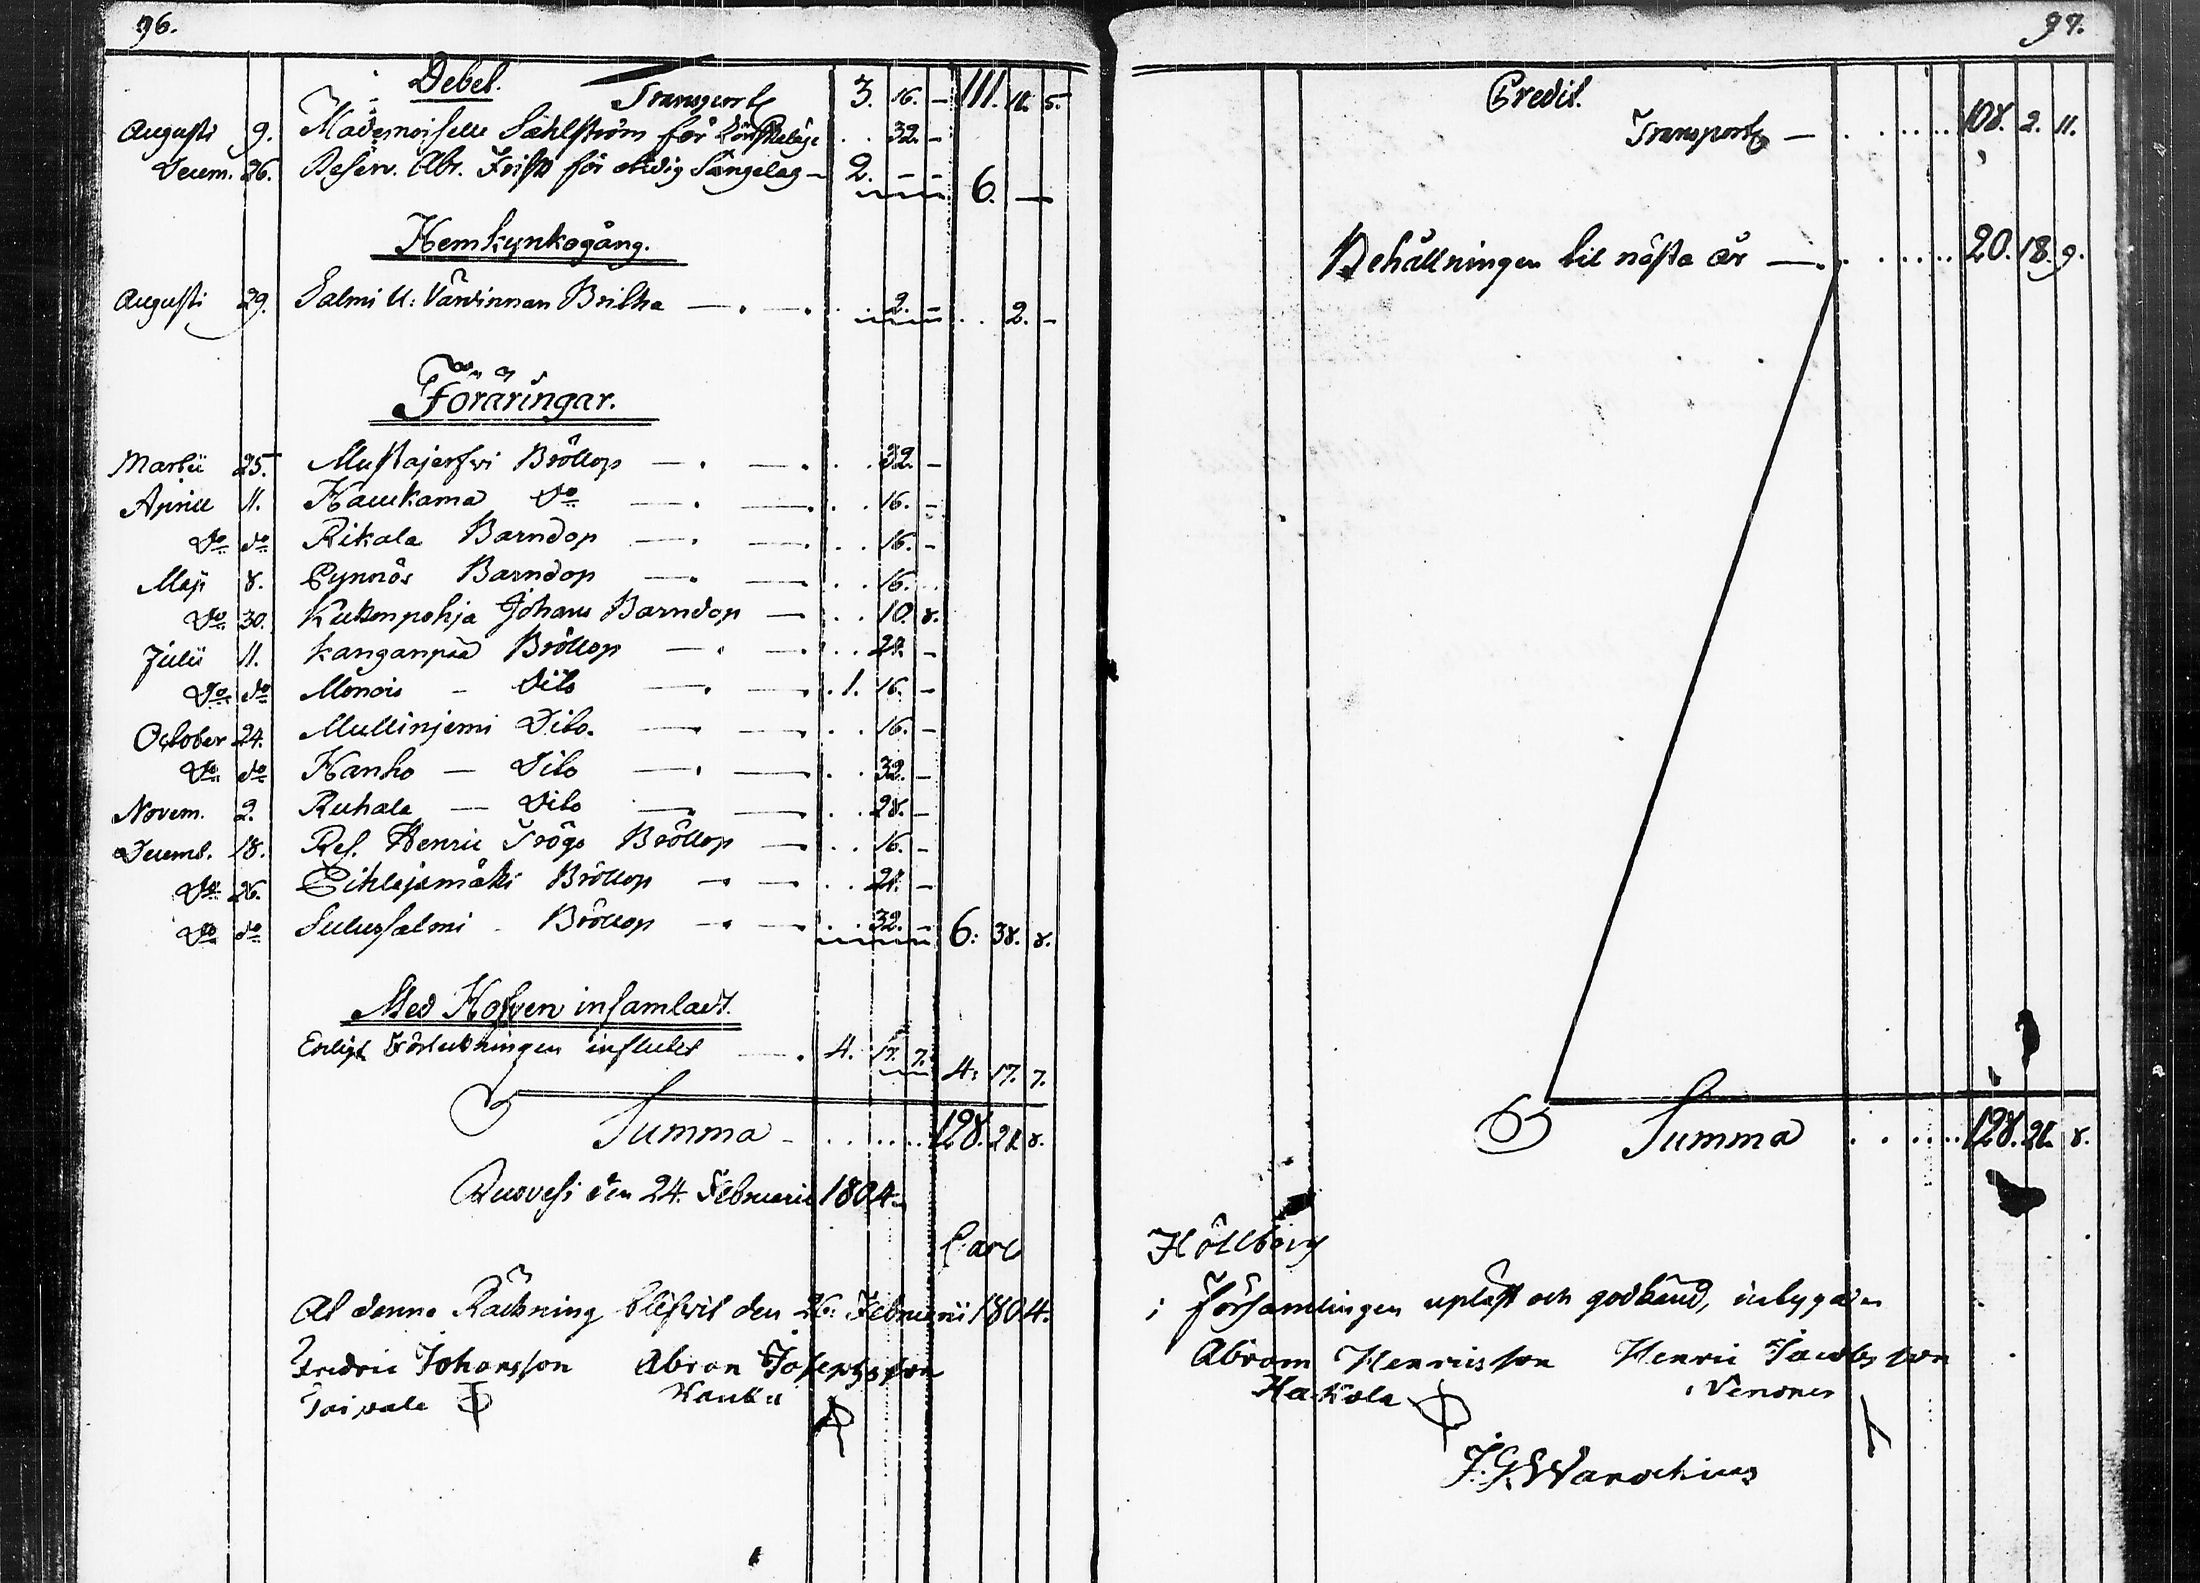 96.
Debet.
Transport 3. 16. — 111. 11. 5.
Augusti 9. Mademoiselle Sahlström för . . 32. —
Decem. 26. Reserv. Abr. Frisk för oredig Sängelag — 2. — — 6. —
Hemkynkogång.
Augusti 29. Salmi U: Värdinnan Britha — . — . . . 2. — . . 2. —
Föräringar.
Martii 25. Mustajerfwi Bröllop — . — . . . 32. —
Aprill 11. Haukama do — . — . . . 16. —
do do Rikala Barndop — . — . . . 16. —
Maji 8. Pynnös Barndop — . — . . . 16.
do 30. Kukonpohja Johans Barndop — . . 10. 8.
Julii 11. Kanganpää Bröllop — . — . . . 24. —
do do Monois — Dito — . — . . 1. 16. —
October 24. Mullinjemi Dito. — . — . . . 16. —
do do Hanho — Dito — . — . . . 32. —
Novem. 2. Ruhala — Dito — . — . . . 28. —
Decemb. 18. Res. Henric Trögs Bröllop — . . 16. —
do 26. Pihlajamäki Bröllop — . — . . . 24. —
do do Sulussalmi . Bröllop — . — . . 32. — 6: 38. 8.
Med Hofven insamladt.
Enligt Förtekningen influtet — . 4. 17. 7. 4: 17. 7.
Summa — . . . . . . . 128. 21. 8.
Ruovesi den 24. Februarii 1804.
Carl
At denna Räkning blifvit den 26: Februarii 1804.
Fredric Johansson Abram Josephsson
Taipale
97.
Credit.
Transport — . . . . . . . 108. 2. 11.
Behållningen til nästa år — . . . . . . . 20. 18. 9.
Summa . . . . . . 128. 21. 8.
Hållberg
i Församlingen upläst och godkänd, intyga
Abram Henricsson Henric Jacobsson
Hakola